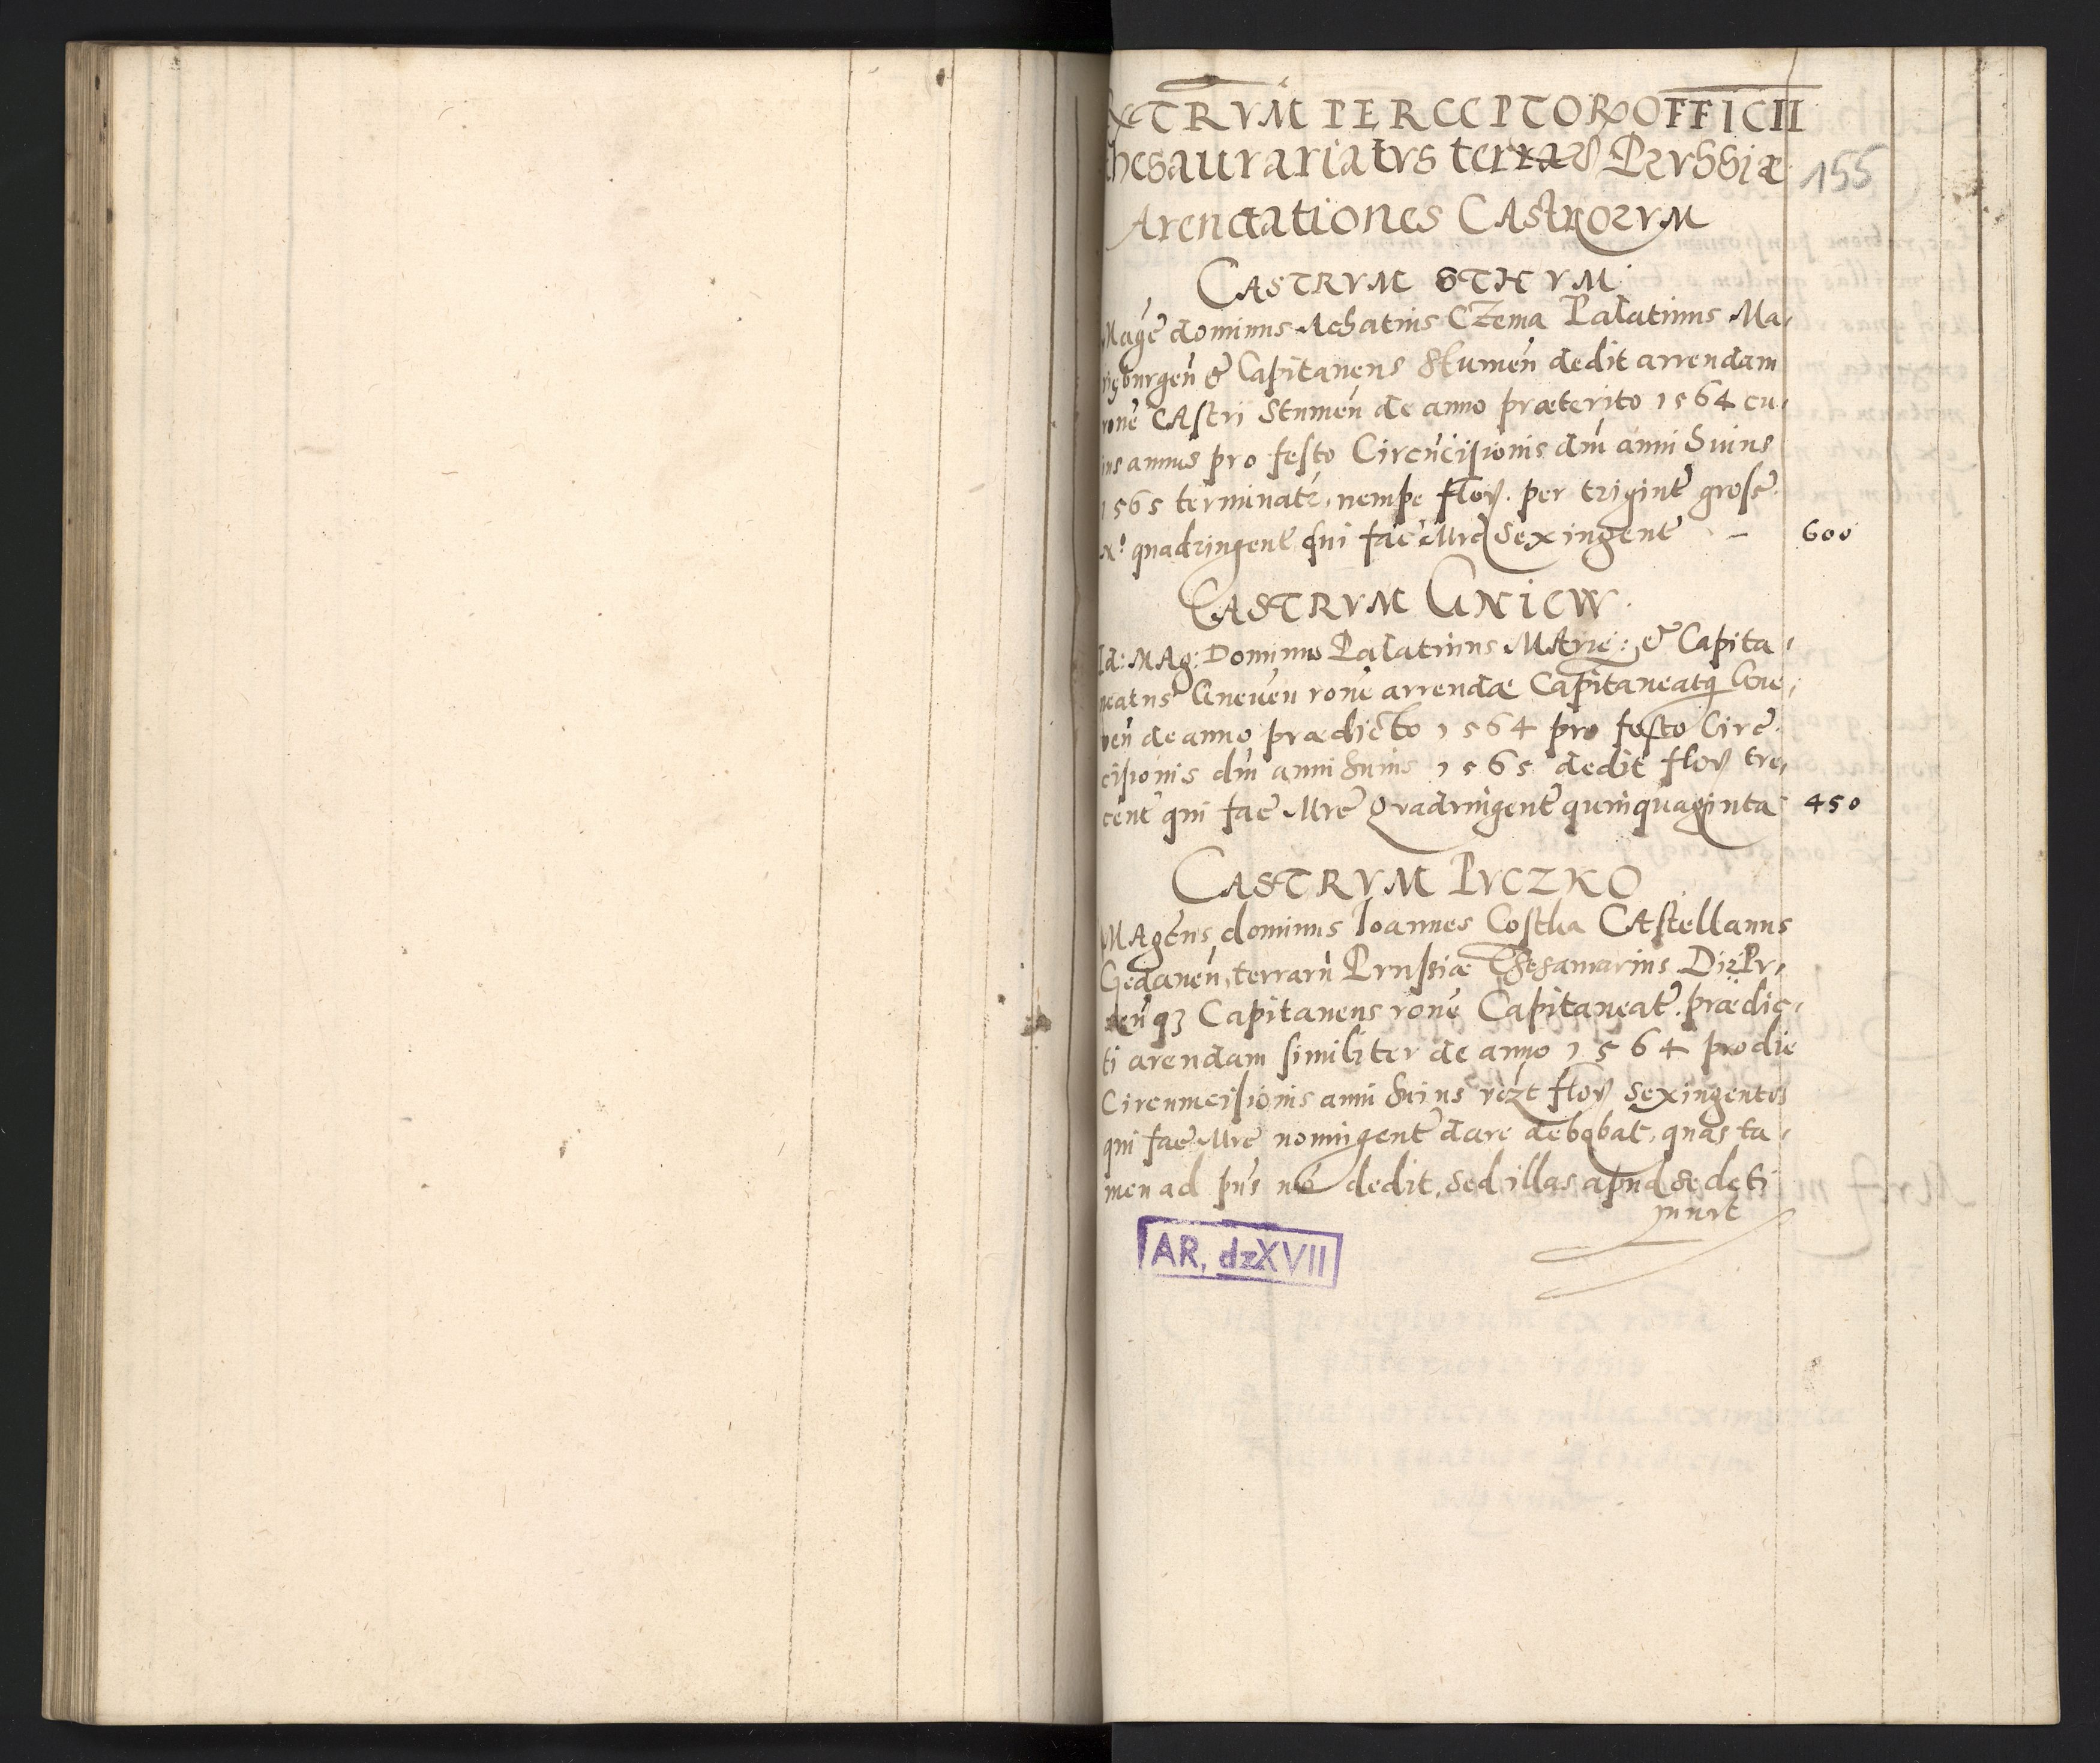 XTRVM PERCEPTOR OFFICII
thesaurariatvs terrar Prvssiæ
155
Arendationes CAstrorvm
CASTRVM STHVM.
Mage dominus Achatius CZema Palatinus Ma,
rigburgen & Capitaneus Stumen dedit arrendam
rone CAstri Stumen de anno præterito 1564 cu,
ius annus pro festo Circucisionis dni anni huius
1565 terminatr, nempe flor. per trigint gross.
quadringent qui fac Mrc Sexingent — 600
CASTRVM GNIEW.
Id: MAg: Dominus Palatinus MArie: & Capita,
neatus Gneven rone arrendæ Capitaneatq Gne,
ven de anno prædicto 1564 pro festo Circ.
cisionis dni anni huius 1565 dedit flor tre,
cent qui fac Mrc Qvadringent quinquaginta 450
CASTRVM PVCZKO
MAgcus dominus Ioannes Costka CAstellanus
Gedanen, terraru Prussiæ Thesaurarius Dirß Pv,
cen qz Capitaneus rone Capitaneat. prædic,
ti arendam similiter de anno 1564 pro die
Circumcisionis anni huius rczt flor Sexingentos
qui fac Mrc nomingent dare debebat, quas ta,
men ad pns no dedit, sed illas apud se deti
nuit
AR, dzXVII